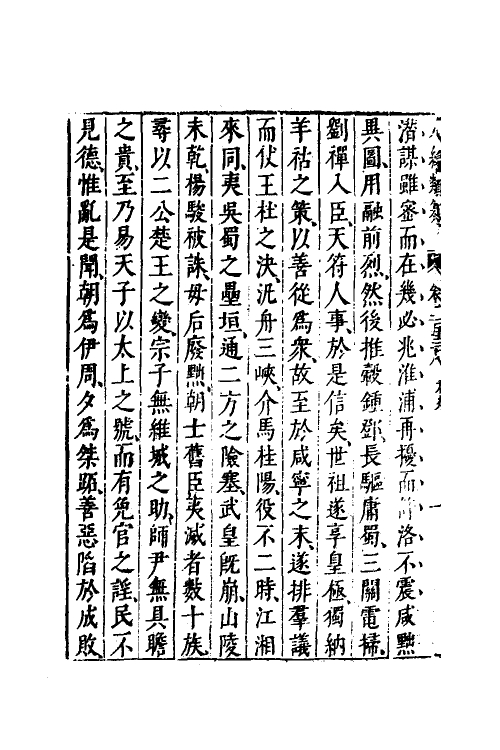 潛謀雖密而在幾必兆淮浦再擾而許洛不震咸黜
異圖用融前烈然後推轂鍾鄧長驅庸蜀三關電掃
劉禪入臣天符人事於是信矣世祖遂享皇極獨納
羊祜之策以善從爲衆故至於咸寧之末遂排羣議
而仗王杜之決汎舟三峽介馬桂陽役不二時江湘
來同夷吳蜀之壘垣通二方之險塞武皇旣崩山陵
未乾楊駿被誅毋后廢黜朝士舊臣夷滅者數十族
尋以二公楚王之變宗子無維城之助師尹無具瞻
之貴至乃易天子以太上之號而有免官之謡民不
見德惟亂是聞朝爲伊周夕爲桀跖善惡陷於成敗